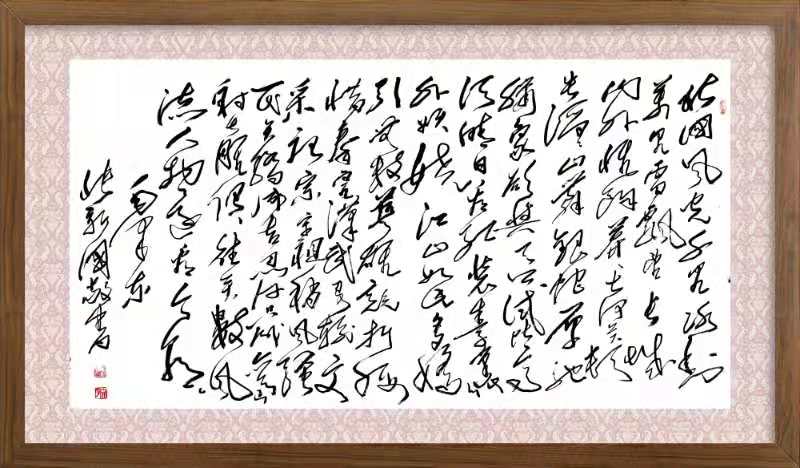 北國风光千里冰封
萬里雪飘望长城
内外惟余莽莽大河上下顿
失滔滔山舞银蛇原驰
蜡象欲与天公试比高
须晴日看红装素裹
分外妖娆江山如此多娇
引无数英雄竞折腰
惜秦皇汉武略输文
采唐宗宋祖稍逊风骚
一代天骄成吉思汗只识弯弓
射大雕俱往矣數风
流人物还看今朝
毛泽东
张新國敬书